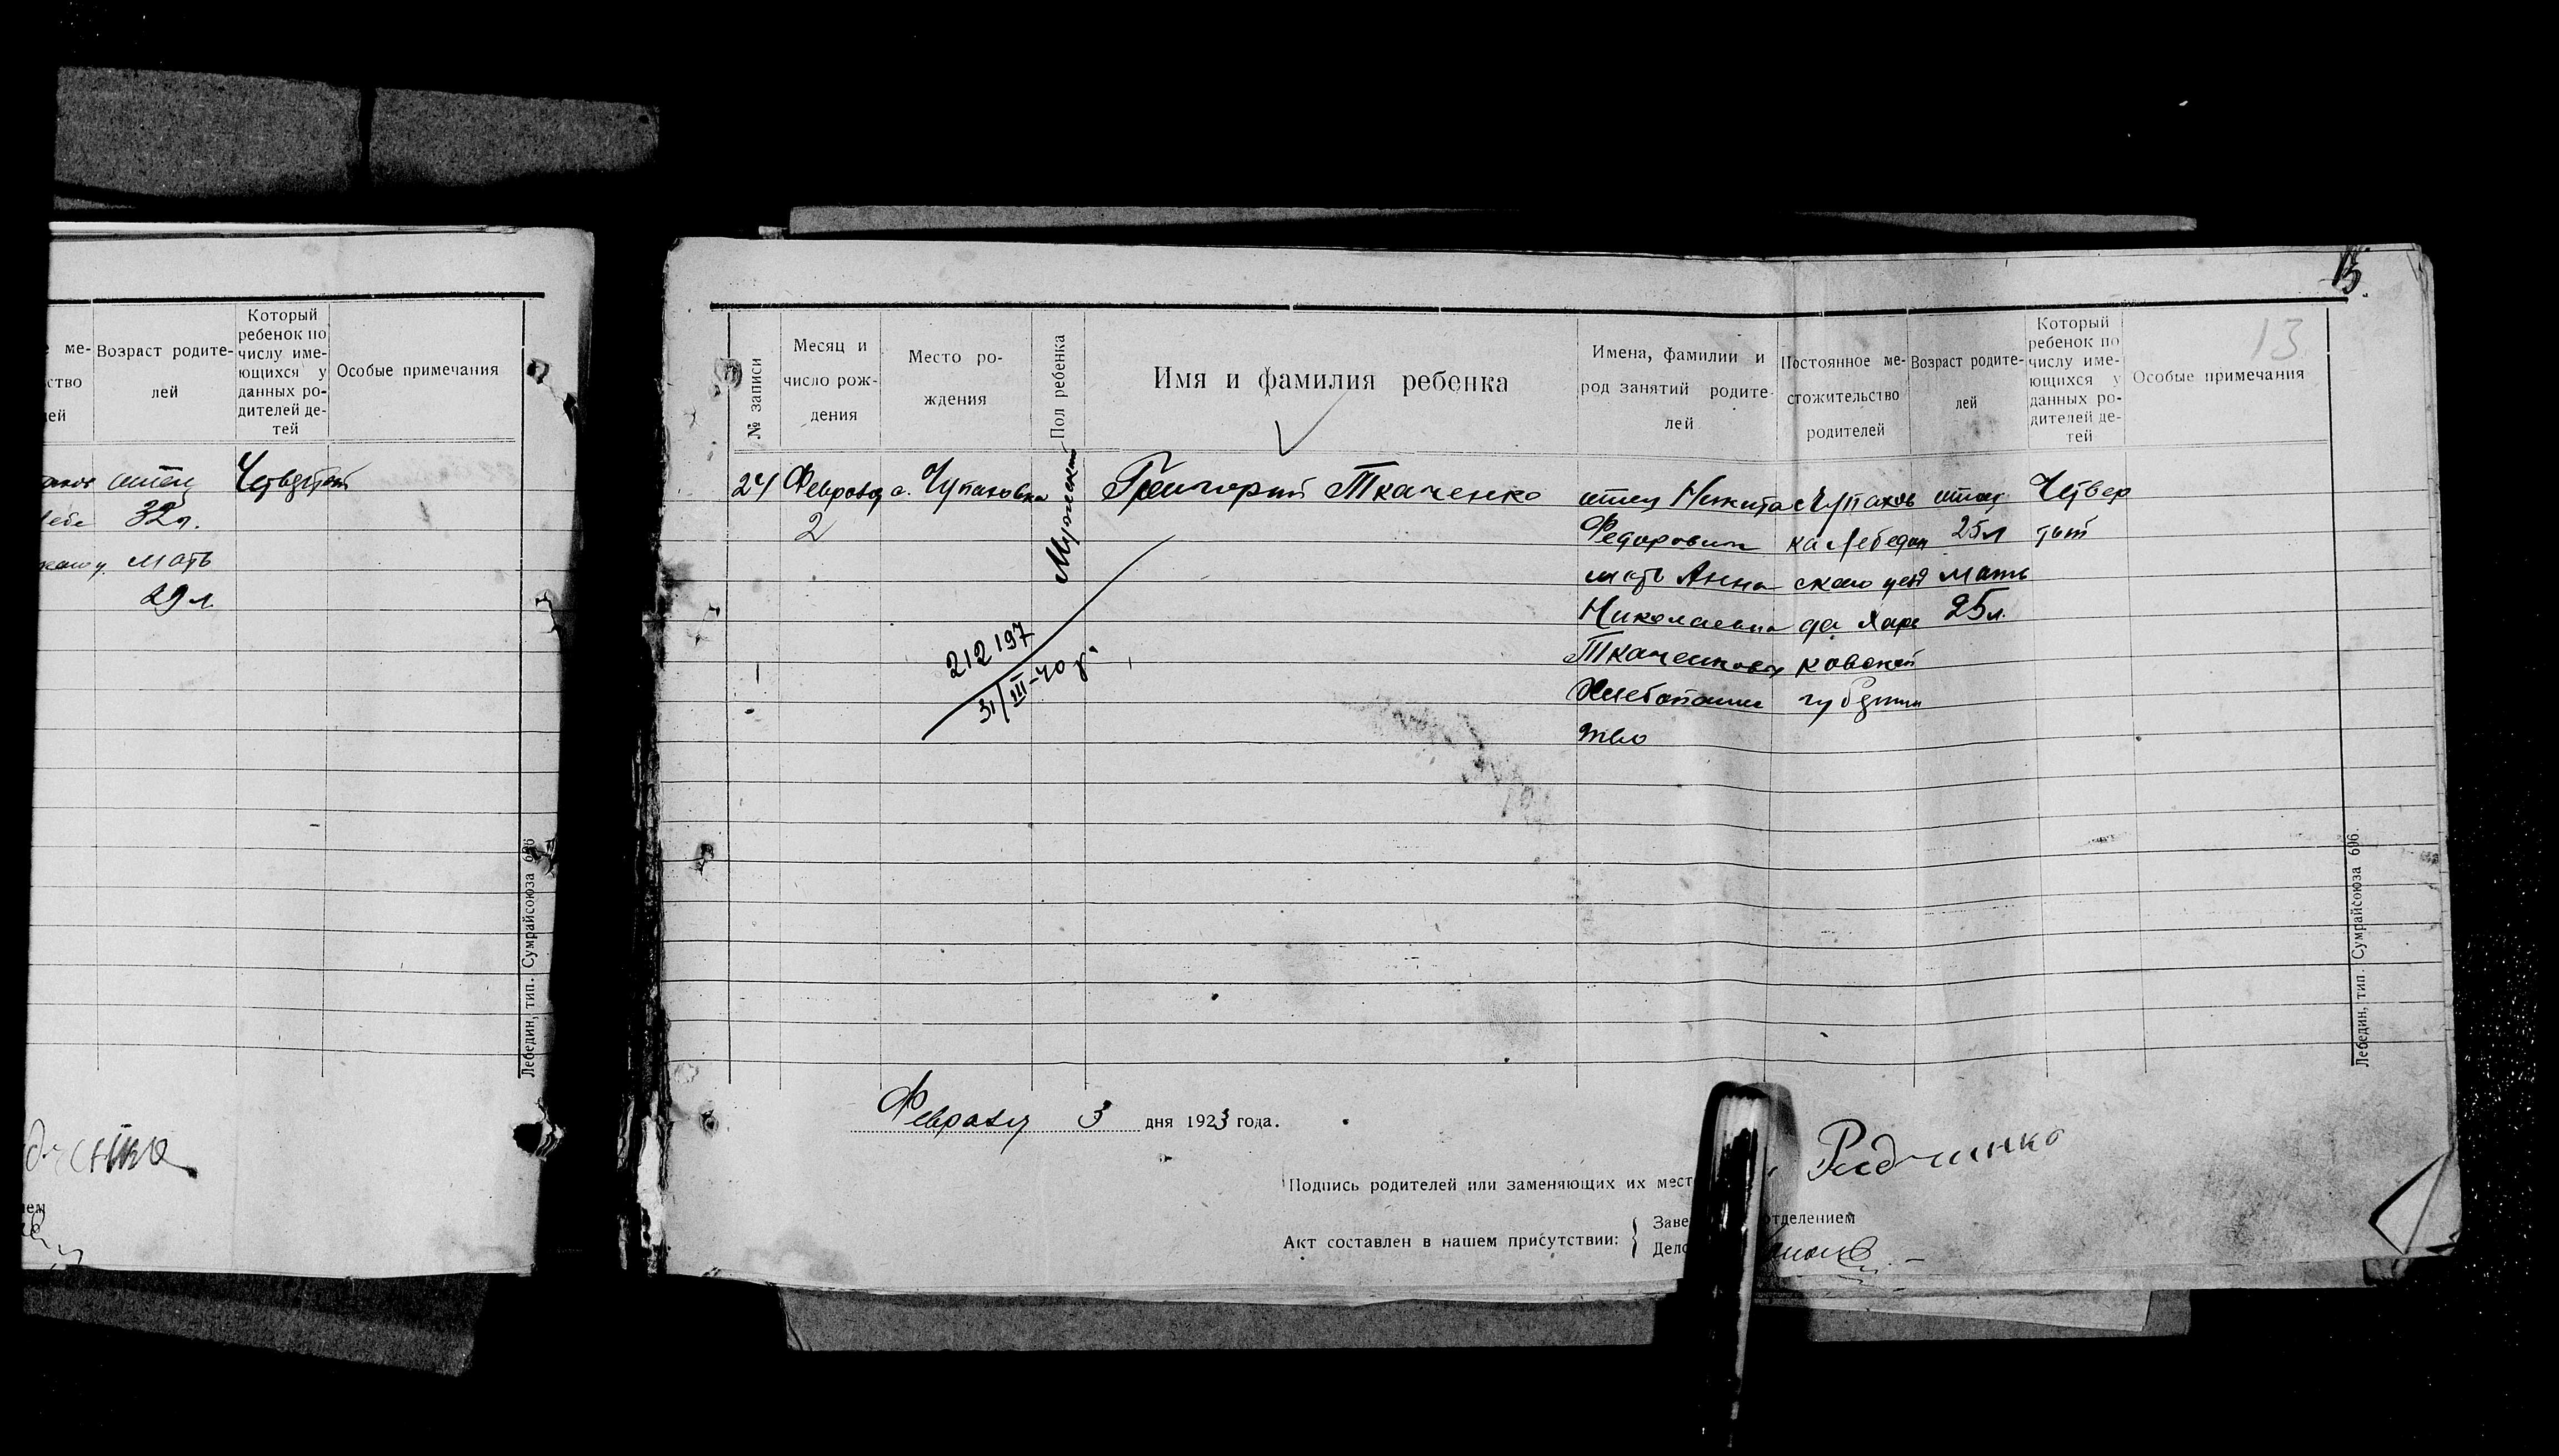 Возраст родите-
лей
Который
ребенок по
числу име-
ющихся у
данных ро-
дителей де-
тей
Особые примечания
отец
32 л.
мать
29 л.
Четвертый
Лебедин, тип. Сумрайсоюза 696
13
№ записи
Месяц и
число рож-
дения
Место ро-
ждения
Пол ребенка
Имя и фамилия ребенка
Имена, фамилии и
род занятий родите-
лей
Постоянное ме-
стожительство
родителей
Возраст родите-
лей
Который
ребенок по
числу име-
ющихся у
данных ро-
дителей де-
тей
Особые примечания
24
Февраля
2
с. Чупаховка
Мужской
Григорий Ткаченко
отец Никита
Федорович
мать Анна
Николаевна
Ткаченковы
Хлебопаше
ство
с Чупахов
ка Лебедин
ского уез
да Харь
ковской
губернии
отец
25 л
мать
25 л.
Четвер
тый
212197
31/III-40 г.
Февраля 3 дня 1923 года.
Подпись родителей или заменяющих их мест
Радченко
Акт составлен в нашем присутствии:
Заве
отделением
Дело
Лебедин, тип. Сумрайсоюза 696.